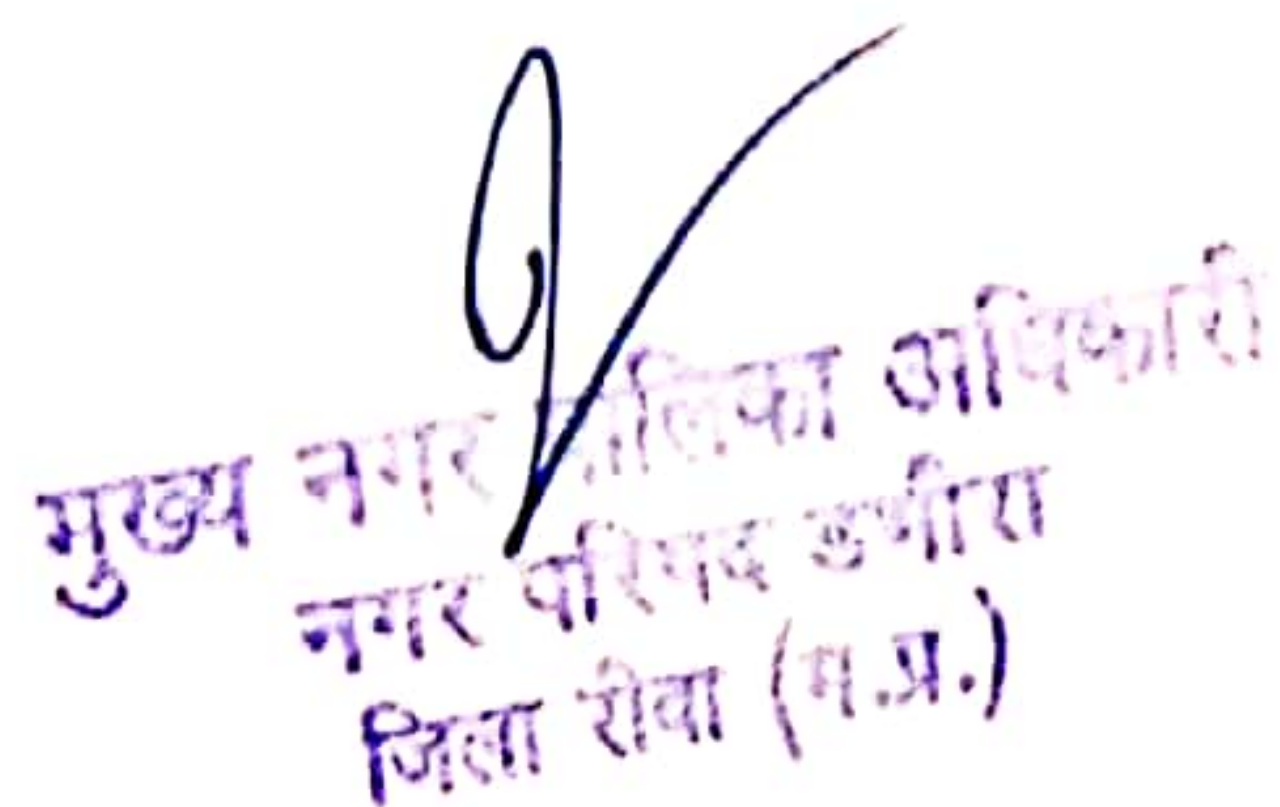 मुख्य नगर पालिका अधिकारी
नगर परिषद डभौरा
जिला रीवा (म.प्र.)